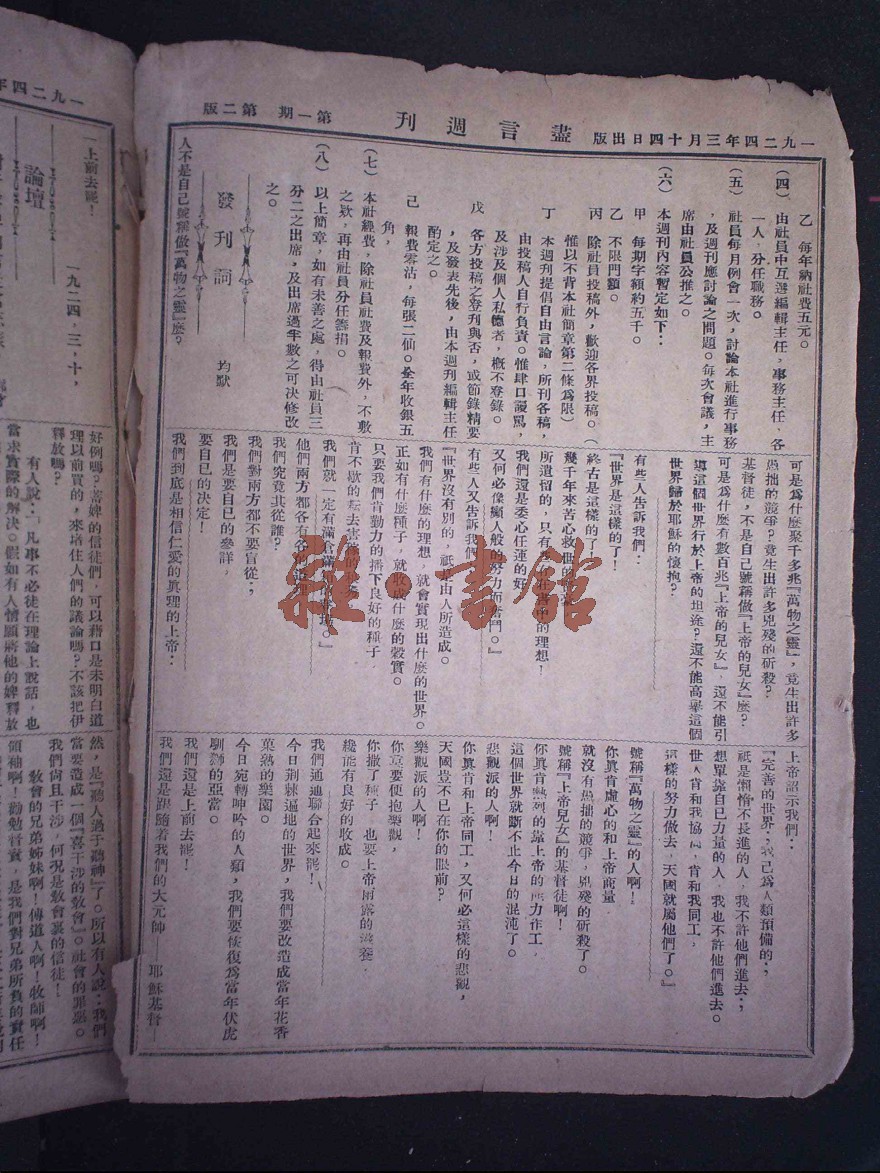 一九二四年三月十四日出版
盡言週刊
第一期 第二版
乙 每年納社費五元。
(四) 由社員中互選編輯主任,事務主任,各
一人,分任職務。
(五) 社員每月例會一次,討論本社進行事務
,及週刊應討論之問題。每次會議,主
席由社員公推之。
(六) 本週刊內容暫定如下:
甲 每期字額約五千。
乙 不限門類。
丙 除社員投稿外,歡迎各界投稿。(
惟以不背本社簡章第二條為限)
丁 本週刊提倡自由言論,所刊各稿,
由投稿人自行負責。惟肆口謾罵,
及涉及個人私德者,概不登錄。
戊 各方投稿之登刊與否,或節錄精要
,及發表先後,由本週刊編輯主任
酌定之。
己 報費零沽,每張二仙。全年收銀五
角,
(七) 本社經費,除社員社費及報費外,不敷
之欵,再由社員分任籌捐。
(八) 以上簡章,如有未善之處,得由社員三
分二之出席,及出席過半數之可決修改
之。
發刊詞
均默
人不是自己號稱做『萬物之靈』麽?
可是為什麽聚千多兆『萬物之靈』,竟生出許多
愚拙的競爭?竟生出許多兇殘的斫殺?
基督徒,不是自己號稱做『上帝的兒女』麽?
可是為什麽有數百兆『上帝的兒女』,還不能引
導這個世界行於上帝的坦途?還不能高舉這個
世界歸於耶穌的懷抱?
有些人告訴我們:
『世界是這樣的了!
終古是這樣的了!
幾千年來苦心救世的
所遺留的,只有
中的理想!
我們還是委心任運的好,
又何必像癲人般的努力而奮鬥。』
有些人又告訴我們:
『世界沒有別的,祇是由人所造成。
我們有什麽的理想,就會實現出什麽的世界。
正如有什麽種子,就收成什麽的穀實。
只要我們肯勤力的播下良好的種子,
肯不歇的去
我們就一定有滿倉滿
。』
他們兩方都各有各的道理,
我們究竟其從誰?
我們對兩方都不要盲從;
我們是要自己的參詳,
要自己的決定!
我們到底是相信仁愛的真理的上帝:
上帝詔示我們:
『完善的世界;我已為人類預備的;
祇是懶惰不長進的人,我不許他們進去;
想單靠自己力量的人,我也不許他們進去。
世人肯和我協同,肯和我同工,
這樣的努力做去,天國就屬他們了。』
號稱『萬物之靈』的人啊!
你真肯虛心的和上帝商量,
就沒有愚拙的競爭,兇殘的斫殺了。
號稱『上帝兒女』的基督徒啊!
你真肯熱烈的靠上帝的能力作工,
這個世界就斷不止今日的混沌了。
悲觀派的人啊!
你真肯和上帝同工,又何必這樣的悲觀,
天國豈不已在你的眼前?
樂觀派的人啊!
你意要便抱樂觀,
你撒了種子,也要上帝雨露的滋養,
纔能有良好的收成。
我們通通聯合起來罷!
今日荊棘遍地的世界,我們要改造成當年花香
菓熟的樂園。
今日宛轉呻吟的人類,我們要恢復為當年伏虎
馴獅的亞當。
我們還是上前去罷!
我們還是跟隨着我們的大元帥——耶穌基督——
一九二四年
論壇
一上前去罷!
一九二四,三,十,
好例嗎?蓄婢的信徒們,可以藉口是未明白道
理以前買的,來堵住人們的議論嗎?不該把伊
釋放嗎?
有人說:「凡事不必徒在理論上說話,也
當求實際的解決。假如有人情願將他的婢釋放
然,是『聽人過于聽神』了。所以有人說:我們
當要造成一個『喜干涉的敎會』。社會的罪惡。
我們尚且干涉,何况是敎會裏的信徒!
敎會的兄弟姊妹啊!傳道人啊!牧師啊!
領袖啊!勸勉督責,是我們對兄弟所負的責任
雜·書館